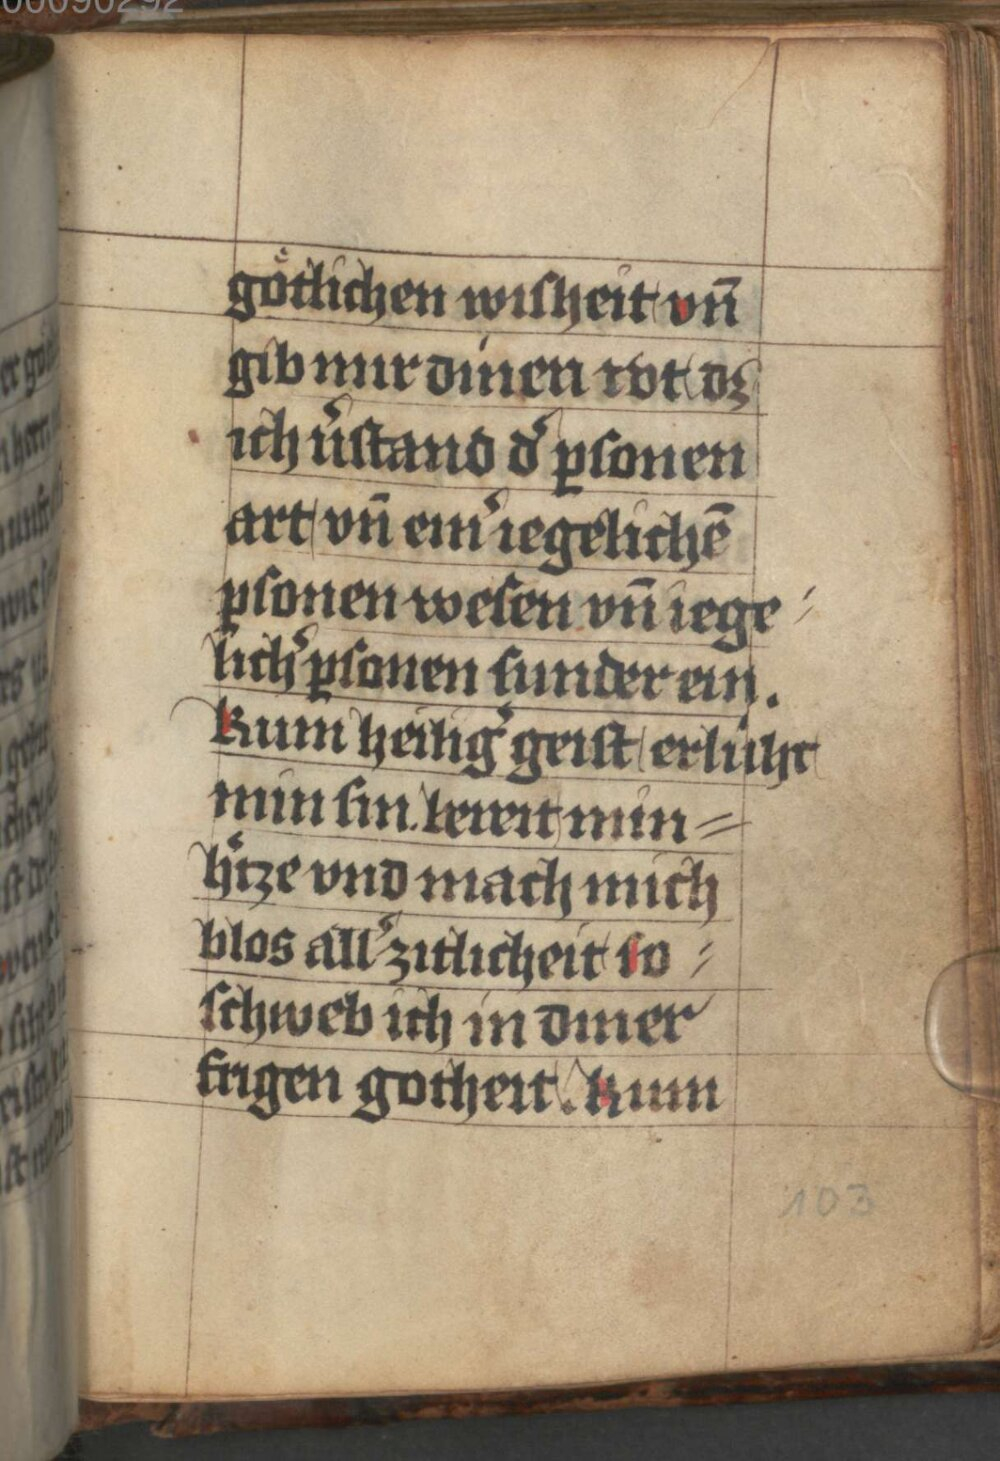 00090292
goͤtlichen wisheit vn̄
gib mir dinen rot dz
ich v̓stand d̓ ꝑsonen
art vn̄ ein̓ iegelichē
ꝑsonen wesen vn̄ iege⸗
lich̓ ꝑsonen sunder ein.
Kum heilig̓ geist erlüht
min sin. bereit min⸗
h̓tze vnd mach mich
blos all̓ zitlicheit so⸗
schweb ich in diner
frigen gotheit. Kum
103